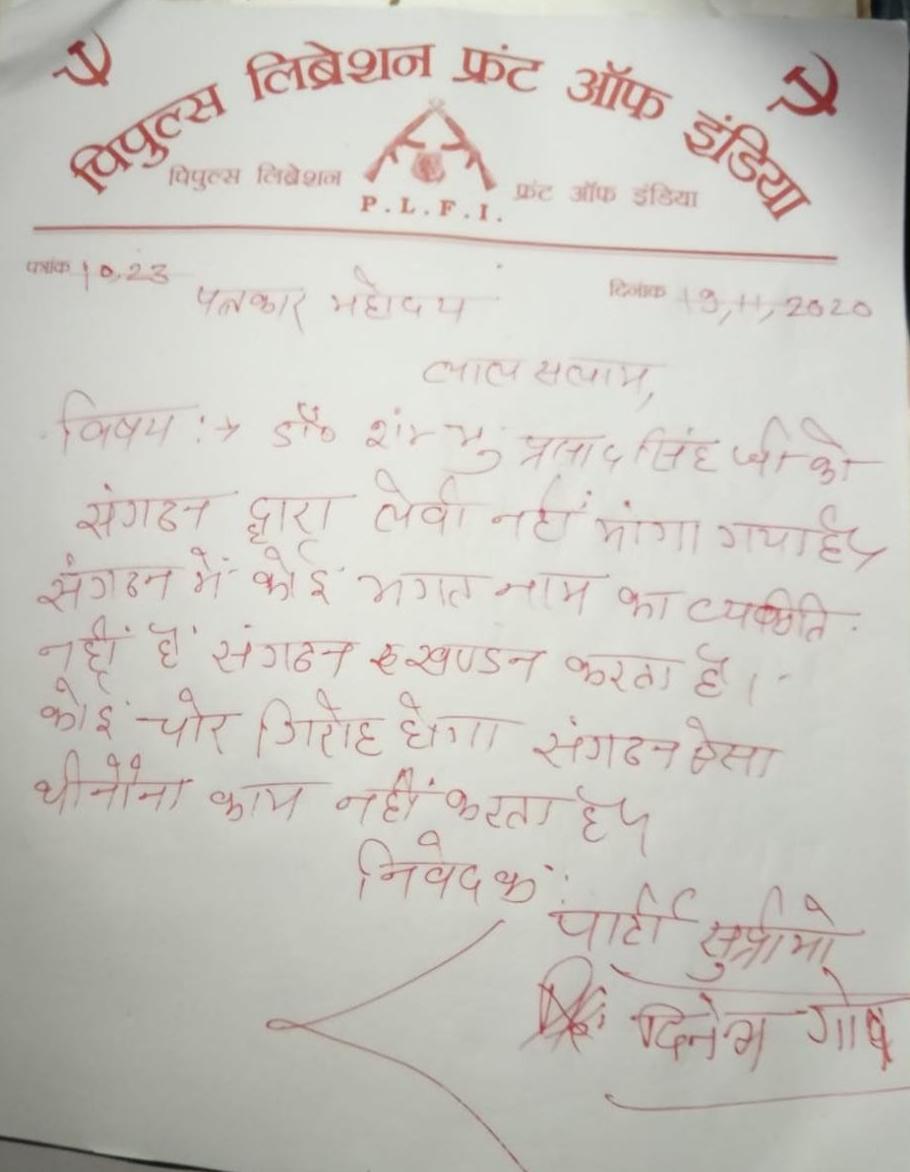 पिपुल्स लिब्रेशन फ्रंट ऑफ इंडिया
पिपुल्स लिब्रेशन फ्रंट ऑफ इंडिया
P.L.F.I.
पत्रांक 10,23 दिनांक 19,11,2020
पत्रकार महोदय
लाल सलाम,
विषय :→ डॉ० शंम्भु प्रसाद सिंह जी को
संगठन द्वारा लेवी नहीं मांगा गया है।
संगठन में कोई भगत नाम का व्यक्ति
नहीं है संगठन खण्डन करता है।
कोई चोर गिरोह होगा संगठन ऐसा
घीनौना काम नहीं करता है।
निवेदक
पार्टी सुप्रीमो
दिनेश गोप